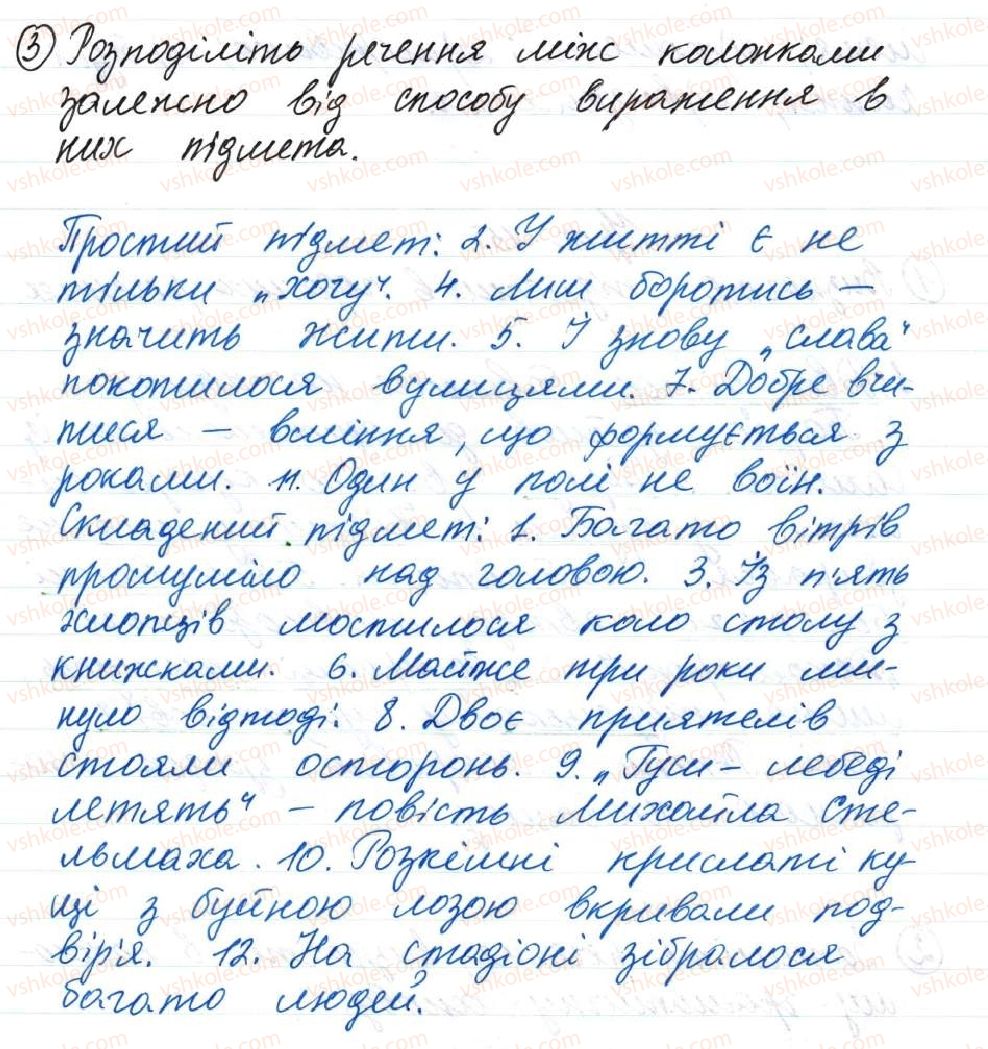 ③ Розподіліть речення між колонками
залежно від способу вираження в
них підмета.
Простий підмет: 2. У житті є не
тільки „хочу". 4. Лиш боротись –
значить жити. 5. І знову „слава"
покотилося вулицями. 7. Добре вчи-
тися – вміння, що формується з
роками. 11. Один у полі не воїн.
Складений підмет: 1. Багато вітрів
прошуміло над головою. 3. Із п'ять
хлопців мостилося коло столу з
книжками. 6. Майже три роки ми-
нуло відтоді. 8. Двоє приятелів
стояли осторонь. 9. „Гуси – лебеді
летять" – повість Михайла Сте-
льмаха. 10. Розкішні крислаті ку-
щі з буйною лозою вкривали под-
вір'я. 12. На стадіоні зібралося
багато людей.